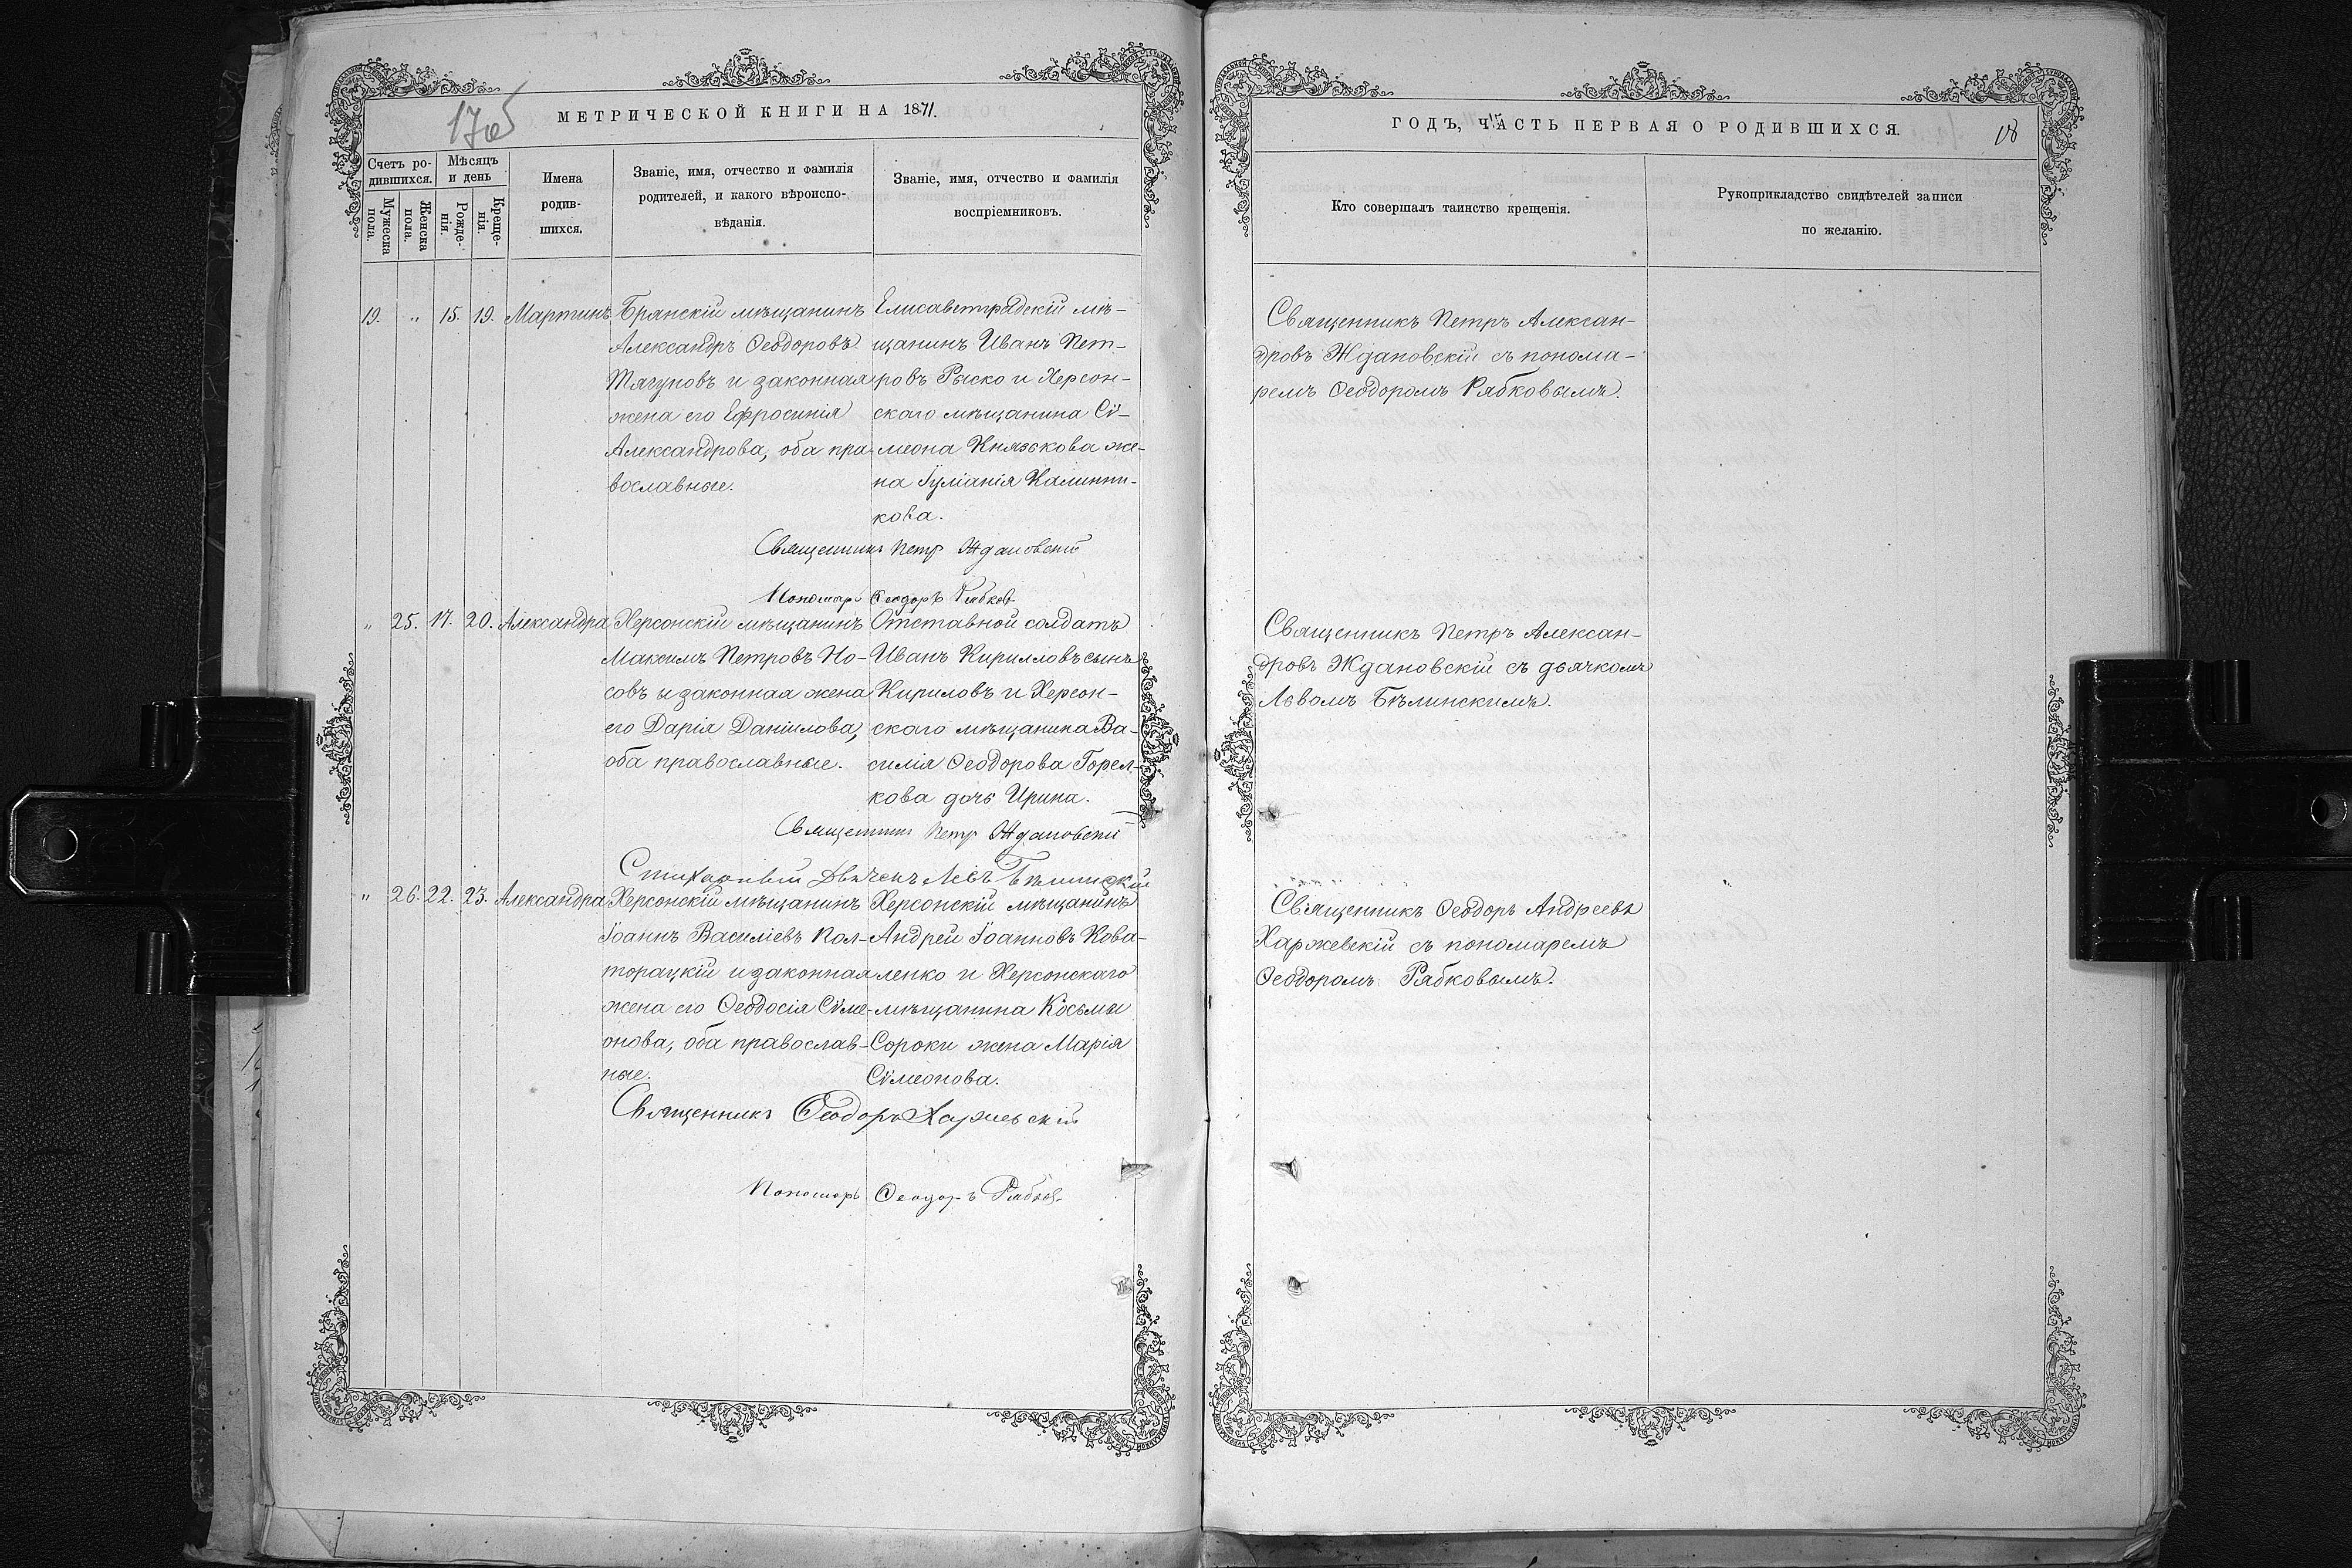 17об
МЕТРИЧЕСКОЙ КНИГИ НА 1871.
Счетъ ро-
дившихся.
Мѣсяцъ
и день
Мужеска
пола.
Женска
пола.
Рожде-
нія.
Креще-
нія.
Имена
родив-
шихся.
Званіе, имя, отчество и фамилія
родителей, и какого вѣроиспо-
вѣданія.
Званіе, имя, отчество и фамилія
воспріемниковъ.
19. " 15. 19. Мартинъ
Брянскій мѣщанинъ
Александръ Ѳеодоровъ
Тягуновъ и законная
жена его Ефросинія
Александрова, оба пра-
вославные.
Елисаветградскій мѣ-
щанинъ Иванъ Пет-
ровъ Рыско и Херсон-
скаго мѣщанина Сѵ-
меона Князькова же-
на Іуліанія Калинни-
кова.
Священникъ Петр Ждановскій
Пономарь Ѳеодоръ Рябков
" 25. 17. 20. Александра
Херсонскій мѣщанинъ
Максимъ Петровъ Но-
совъ и законная жена
его Дарія Даніилова,
оба православные.
Отставной солдатъ
Иванъ Кирилловъ сынъ
Кириловъ и Херсон-
скаго мѣщанина Ва-
силія Ѳеодорова Горел-
кова дочь Ирина.
Священник Петр Ждановскій
Стихарный Дьячекъ Левъ Бѣлинскій
" 26. 22. 23. Александра
Херсонскій мѣщанинъ
Іоаннъ Василіевъ Пол-
торацкій и законная
жена его Ѳеодосія Сѵме-
онова, оба православ-
ные.
Херсонскій мѣщанинъ
Андрей Іоанновъ Кова-
ленко и Херсонскаго
мѣщанина Косьмы
Сороки жена Марія
Сѵмеонова.
Священникъ Ѳеодоръ Харжевскій
Пономарь Ѳеодоръ Рябков
ГОДЪ, ЧАСТЬ ПЕРВАЯ О РОДИВШИХСЯ.
18
Кто совершалъ таинство крещенія.
Рукоприкладство свидѣтелей записи
по желанію.
Священникъ Петръ Алексан-
дровъ Ждановскій съ понома-
ремъ Ѳеодоромъ Рябковымъ.
Священникъ Петръ Алексан-
дровъ Ждановскій съ дьячкомъ
Львомъ Бѣлинскимъ.
Священникъ Ѳеодоръ Андреевъ
Харжевскій съ пономаремъ
Ѳеодоромъ Рябковымъ.